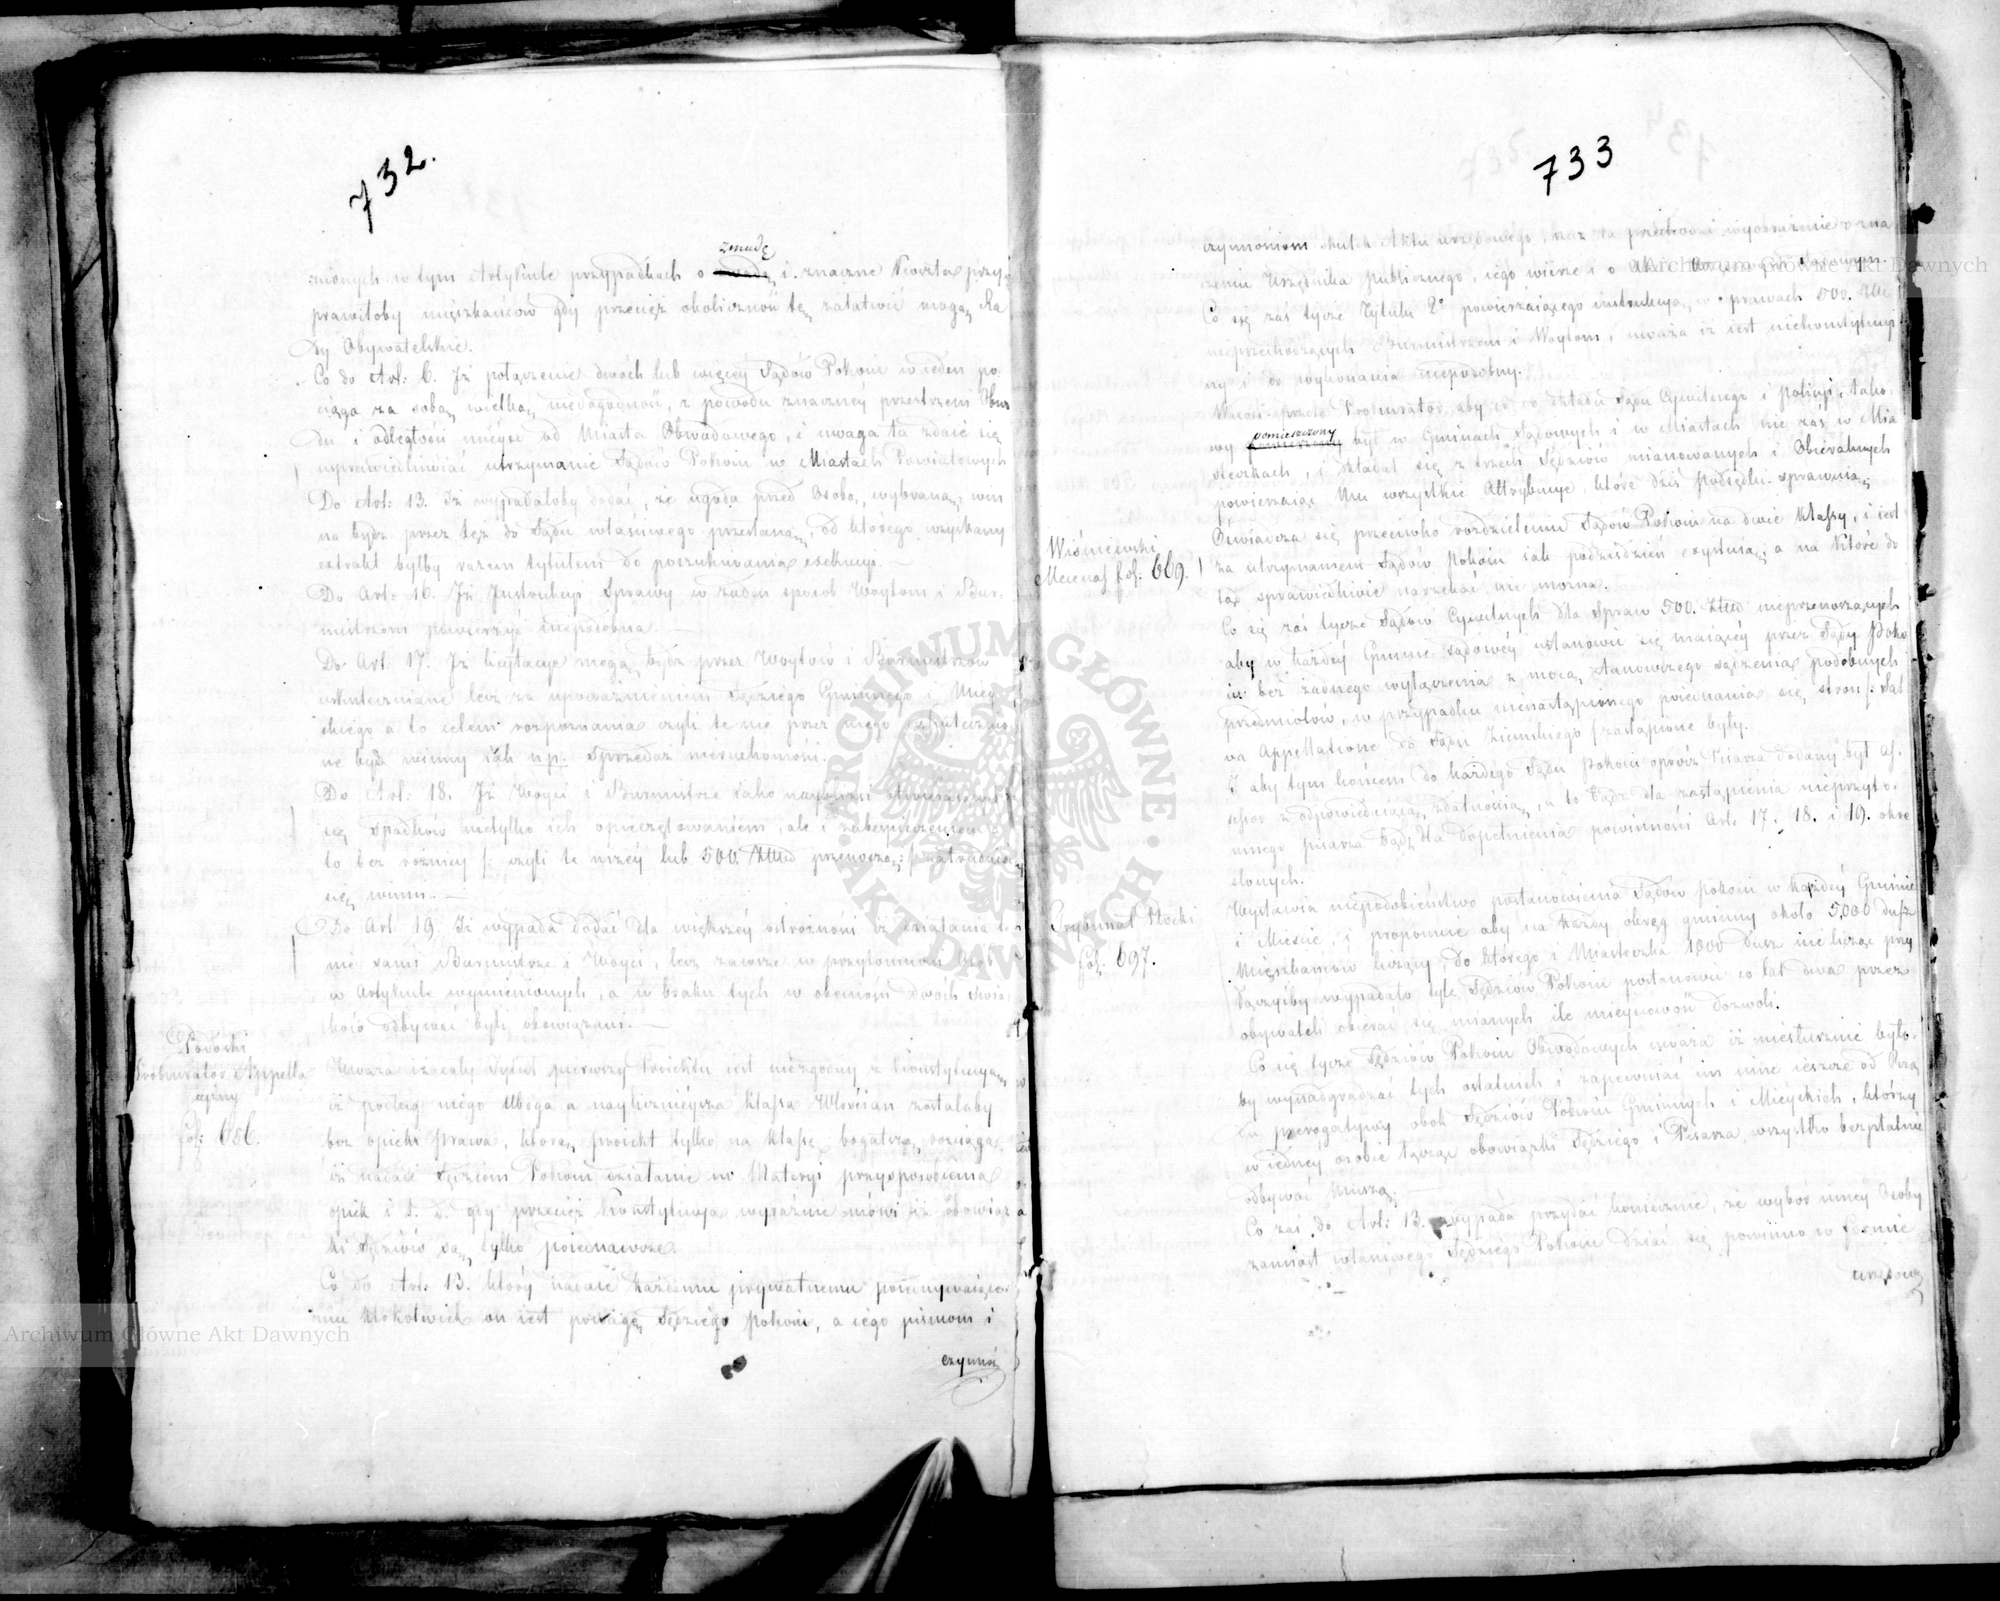 732.
znionych w tym Artykule przypadkach o zwadę i znaczne koszta przy
prawiłoby mieszkańców gdy przecież okoliczność tę załatwić mogą
Obywatelskie.
Co do Art: 6. Iż połączenie dwóch lub więcéy Sądów Pokoiu w ieden po
ciąga za sobą wielką niedogodność, z powodu znacznéy przestrzeni Obwo
du i odległości mieysc od Miasta Obwodowego, i uwaga ta zdaie się
usprawiedliwiać utrzymanie Sądów Pokoiu w Miastach Powiatowych
Do Art: 13. Iż wypadałoby dodać, że ugoda przed Osobą wybraną, win
na bydź przez też do Sądu właściwego przesłaną, od którego uzyskany
extrakt byłby razem tytułem do poszukiwania exekucyi. —
Do Art: 16. Iż Instrukcyi Sprawy w żaden sposób Woytom i Bur-
mistrzom powierzyć niepodobna. —
Do Art. 17. Iż licytacye mogą bydź przez Woytów i Burmistrzów
uskuteczniane lecz za upoważnieniem Sędziego Gminnego i Miey
skiego a to celem rozpoznania czyli te nie przez niego uskutecznio
ne bydź winny iak np. Sprzedaż nieruchomości.
Do Art. 18. Iż Woyci i Burmistrze iako naybliżsi
się Spadków nietylko ich opieczętowaniem, ale i
to bez różnicy /: czyli te niżéy lub 500. Złtt przenoszą :/ zatrudniać
się winni. —
Do Art 19. Iż wypada dodać dla większéy ostrożności iż działania te
nie sami Burmistrze i Woyci, lecz zawsze w przytomności Osób
w Artykule wymienionych, a w braku tych w obecności dwóch Świa
dków odbywać byli obowiązani. —
Podoski
Prokurator Appella
cyiny
fol: 656.
Uważa iż cały Tytuł pierwszy Proiektu iest niezgodny z Konstytucyą
iż podług niego uboga a naylicznieysza klassa Włościan zostałaby
bez opieki prawa, którą proiekt tylko na klassę bogatszą rozciąga
iż nadaie Sędziom Pokoiu działanie w Materyi przysposobienia
opiek i t. d. gdy przecież Konstytucya wyraźnie mówi iż obowiąz
ki Sędziów są tylko poiednawcze.
Co do Art. 13. który nadaie każdemu prywatnemu
mu ktokolwiek on iest powagę Sędziego Pokoiu, a iego pismom i
czynno
733
czynnościom skutek Aktu urzędowego, rzecz ta przechodzi wyobrażenie o zna
czeniu Urzędnika publicznego, iego wierze i o
Co się zaś tycze Tytułu 2° powierzaiącego instrukcyą w sprawach 500. Złtt
nieprzechodzących Burmistrzom i Woytom, uważa iż iest niekonstytucyi
ny i do wykonania niepodobny.
Wnosi przeto Prokurator aby co do składu Sądu Cywilnego i Policyi, tako-
wy pomieszczony był w Gminach Sądowych i w Miastach nie zaś w Mia
steczkach, i składał się z trzech Sędziów mianowanych i Obieralnych
powierzaiąc Mu wszystkie Attrybucye, które dziś Podsędki sprawuią
Wiśniewski
Mecenas fol: 669.
Oświadcza się przeciwko rozdzieleniu Sądów Pokoiu na dwie klassy, i iest
za utrzymaniem Sądów Pokoiu iak podziśdzień exystuią a na które do
tąd sprawiedliwie narzekać nie można.
Co się zaś tycze Sądów Cywilnych dla spraw 500. Złtt nieprzenoszących
aby w każdéy Gminie Sądowéy ustanowić się maiącéy przez Sądy Poko
iu bez żadnego wyłączenia z mocą stanowczego sądzenia podobnych
przedmiotów, w przypadku nienastąpionego poiednania się stron /: Sal
va Appellatione do Sądu Ziemskiego :/ zastąpione były.
I aby tym końcem do każdego Sądu Pokoiu oprócz Pisarza dodany był As-
sesor z odpowiedaiącą zdatnością, a to bądź dla zastąpienia nieprzyto-
mnego pisarza bądź dla dopełnienia powinności Art. 17. 18. i 19. okre
ślonych.
Trybunał Płocki
fol: 697.
Wystawia niepodobieństwo postanowienia Sądów pokoiu w każdéy Gminie
i Mieście, i proponuie aby na każdy okręg gminny około 5,000 dusz
Mieszkańców liczący, do którego i Miasteczka 1,800 dusz nie licząc przy
łączyćby wypadało, tyle Sędziów Pokoiu postanowić co lat dwa przez
obywateli obierać się mianych ile mieyscowość dozwoli.
Co się tycze Sędziów Pokoiu Obwodowych uważa iż niesłusznie było-
by wynadgradzać tych ostatnich i zapewniać im inne ieszcze od Rzą
du prerogatywy obok Sędziów Pokoiu Gminnych i Mieyskich, którzy
w iednéy osobie łącząc obowiązki Sędziego i Pisarza, wszystko bezpłatnie
odbywać muszą. —
Co zaś do Art: 13. wypada przydać koniecznie, że wybór innéy Osoby
zamiast właściwego Sędziego Pokoiu dziać się powinno w formie
urzędowéy
ARCHIWUM GŁÓWNE AKT DAWNYCH
Archiwum Główne Akt Dawnych
Archiwum Główne Akt Dawnych